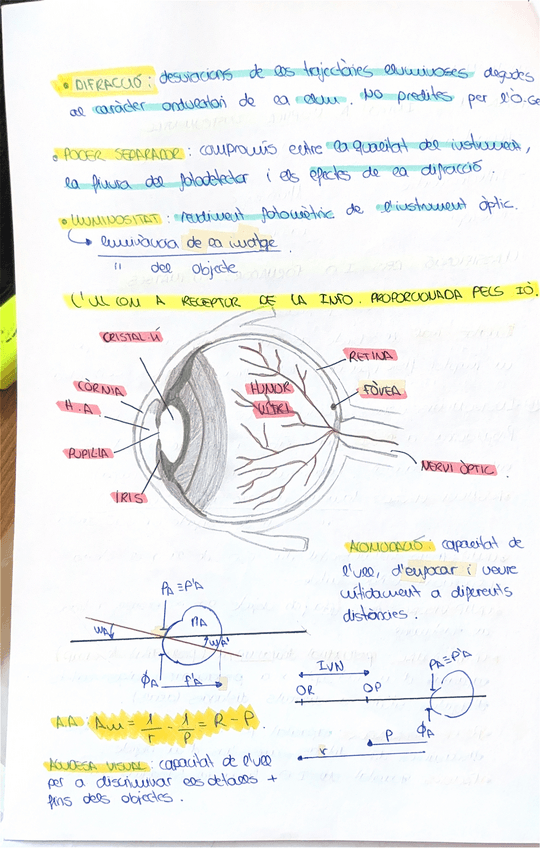 • DIFRACCIÓ: desviacions de les trajectòries lluminoses degudes
al caràcter ondulatori de la llum. NO predites per l'Ò.Ge
• PODER SEPARADOR: compromís entre la qualitat del instrument,
la finura del fotodetector i els efectes de la difracció.
• LLUMINOSITAT: rendiment fotomètric de l'instrument òptic.
↳ luminància de la imatge
" del objecte
L'ULL COM A RECEPTOR DE LA INFO. PROPORCIONADA PELS IÒ.
CRISTAL·LÍ
RETINA
CÒRNIA
HUMOR
FÒVEA
H.A
VITRI
PUPIL·LA
NERVI ÒPTIC.
IRIS
ACOMODACIÓ: capacitat de
l'ull, d'enfocar i veure
nítidament a diferents
distàncies.
PA≡P'A
nA
wA
w'A'
ΦA
f'A
IVN
PA≡P'A
OR
OP
ΦA
P
r
A.A: Am = 1/r - 1/p = R - P.
AGUDESA VISUAL: capacitat de l'ull
per a discriminar els detalls +
fins dels objectes.